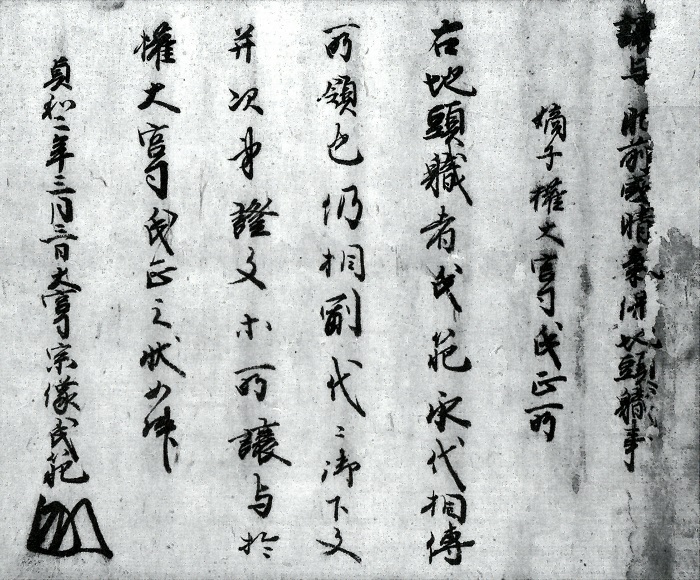 譲与 肥前國晴氣保地頭職事
嫡子權大宮司氏正所
右地頭職者氏範永代相傳
所領也仍相副代〻御下文
并次第證文等所譲与於
權大宮司氏正之状如件
貞和二年三月三日大宮司宗像氏範